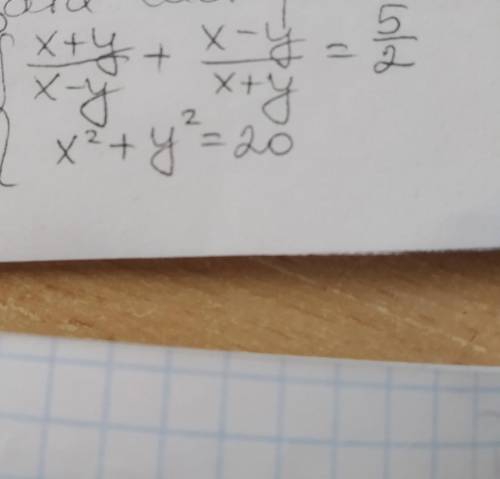 (x+y)/(x-y) + (x-y)/(x+y) = 5/2
x² + y² = 20